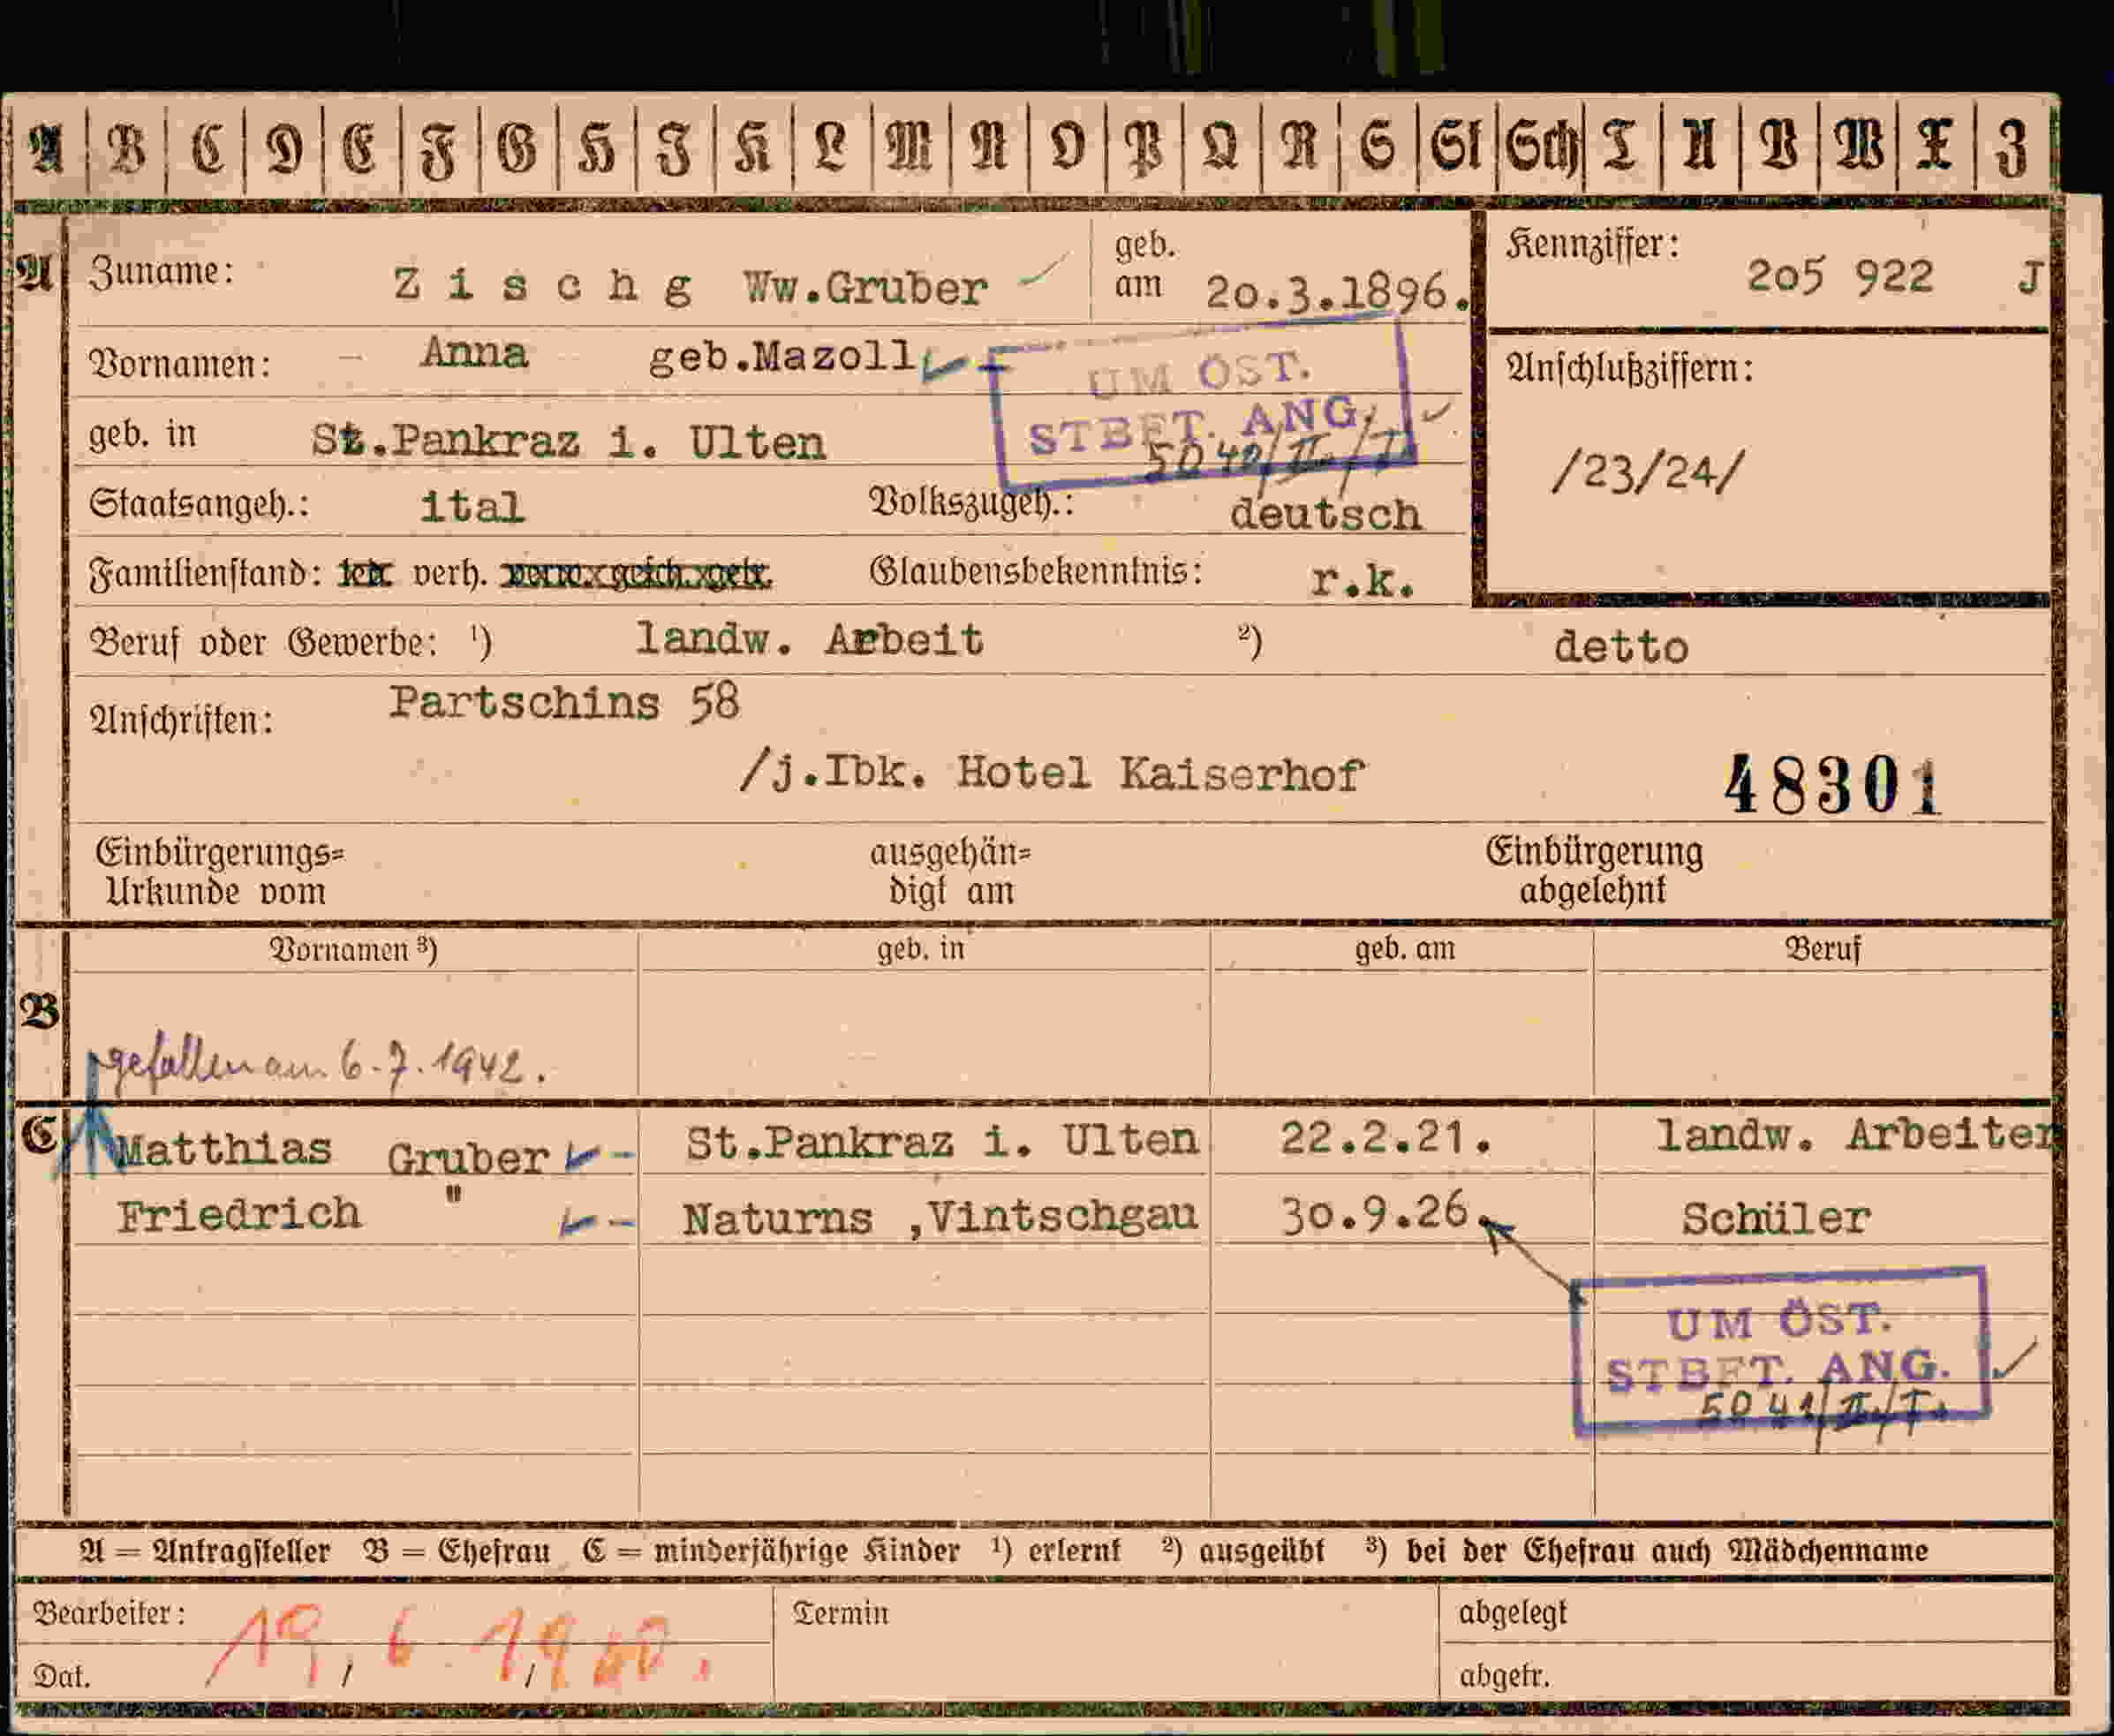 A B C D E F G H I K L M N O P Q R S St Sch T U V W X Z
A Zuname: Zischg Ww.Gruber geb. am 20.3.1896. Kennziffer: 205 922 J
Vornamen: - Anna geb.Mazoll
UM ÖST.
STBFT. ANG.
5040/II./I.
Anschlußziffern:
/23/24/
geb. in St.Pankraz i. Ulten
Staatsangeh.: ital Volkszugeh.: deutsch
Familienstand: led. verh. verw. gesch. getr. Glaubensbekenntnis: r.k.
Beruf oder Gewerbe: ¹) landw. Arbeit ²) detto
Anschriften: Partschins 58
/j.Ibk. Hotel Kaiserhof 48301
Einbürgerungs=
Urkunde vom
ausgehän=
digt am
Einbürgerung
abgelehnt
Vornamen ³) geb. in geb. am Beruf
B
gefallen am 6.7.1942.
C Matthias Gruber - St.Pankraz i. Ulten 22.2.21. landw. Arbeiter
Friedrich " - Naturns ,Vintschgau 30.9.26. Schüler
UM ÖST.
STBFT. ANG.
5041/II./I.
A = Antragsteller B = Ehefrau C = minderjährige Kinder ¹) erlernt ²) ausgeübt ³) bei der Ehefrau auch Mädchenname
Bearbeiter: Termin abgelegt
Dat. abgetr.